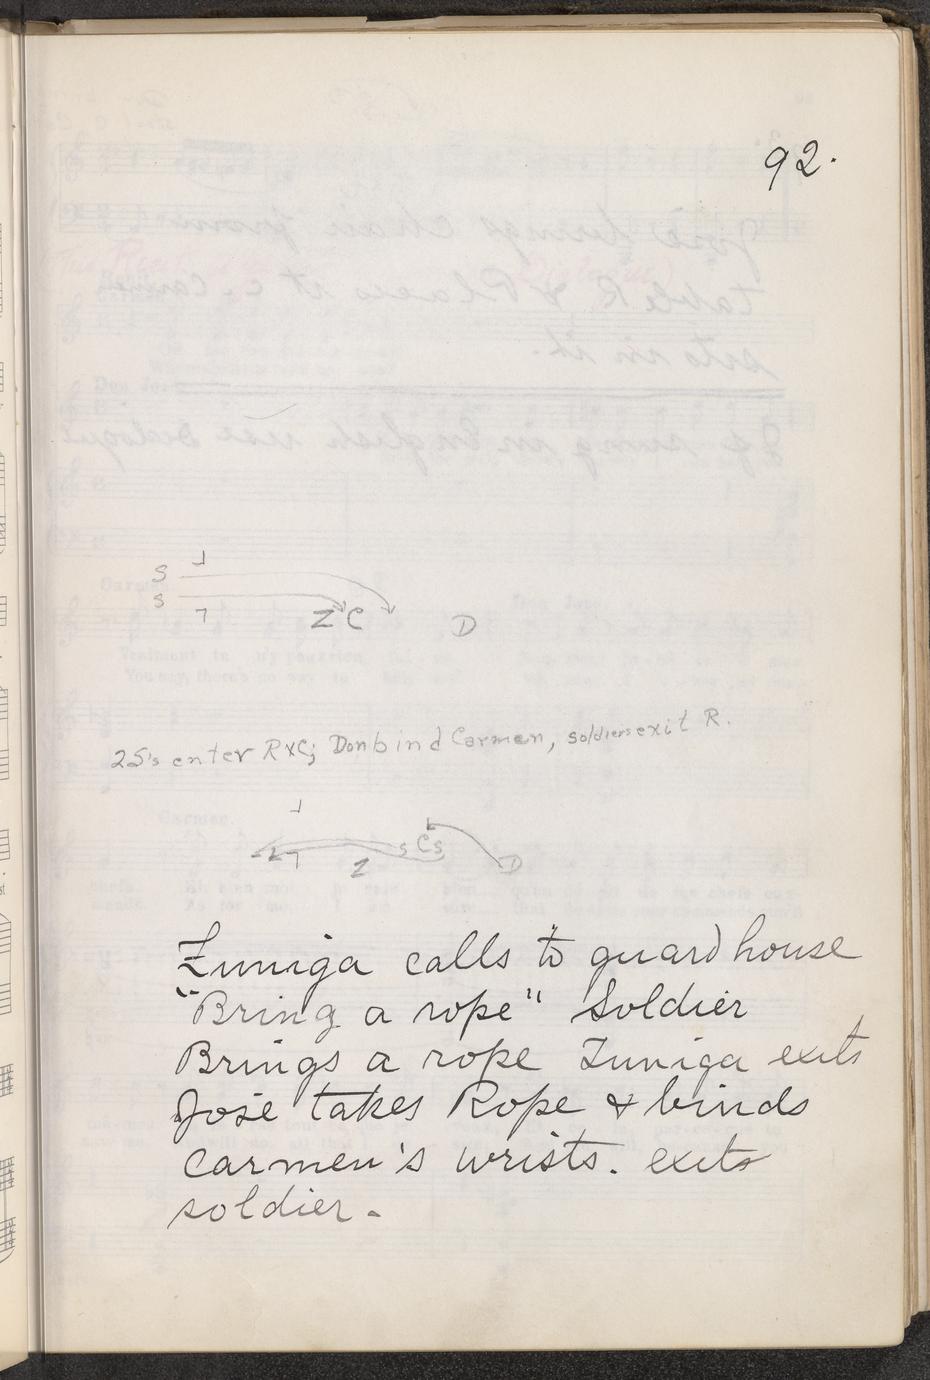 92.
S
S
Z C D
2S's enter R x C; Don bind Carmen, soldiers exit R.
S C S
Z D
Zuniga calls to guard house
"Bring a rope" Soldier
Brings a rope Zuniga exits
José takes Rope & binds
Carmen's wrists. exits
soldier.